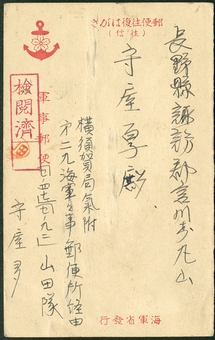 郵便往復はがき
(往信)
長野縣諏訪郡富川村丸山
守屋 殿
軍事郵便
檢閲濟
横須賀局氣附
第二九海軍軍事郵便所経由
山田隊
守屋
海軍省發行